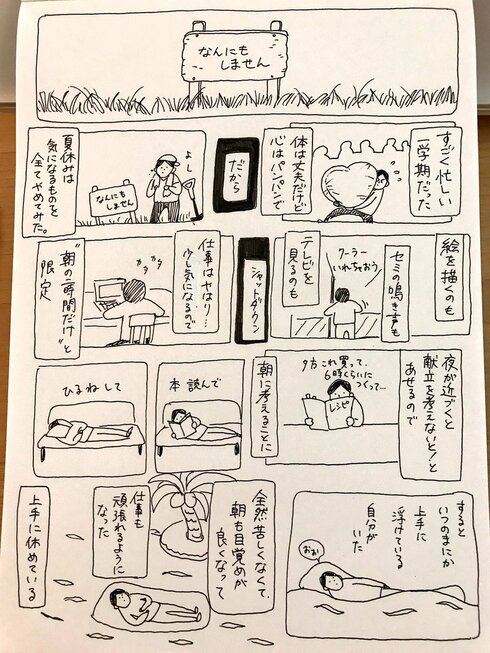 なんにも
しません
すごく忙しい
一学期だった
体は丈夫だけど
心はパンパンで
だから
よし
なんにも
しません
夏休みは
気になるものを
全てやめてみた。
絵を描くのも
セミの鳴き声も
クーラー
いれちゃおう
テレビを
見るのも
シャットダウン
仕事はやはり…
少し気になるので
カタカタ
"朝の一時間だけ"と
限定
夜が近づくと
献立を考えないと!と
あせるので
夕方これ買って、
6時くらいに
つくって…
レシピ
朝に考えることに
本読んで
ひるねして
すると
いつのまにか
上手に
浮けている
自分が
いた
おぉ
全然苦しくなくて、
朝も目覚めが
良くなって
仕事も
頑張れるように
なった
上手に休めている